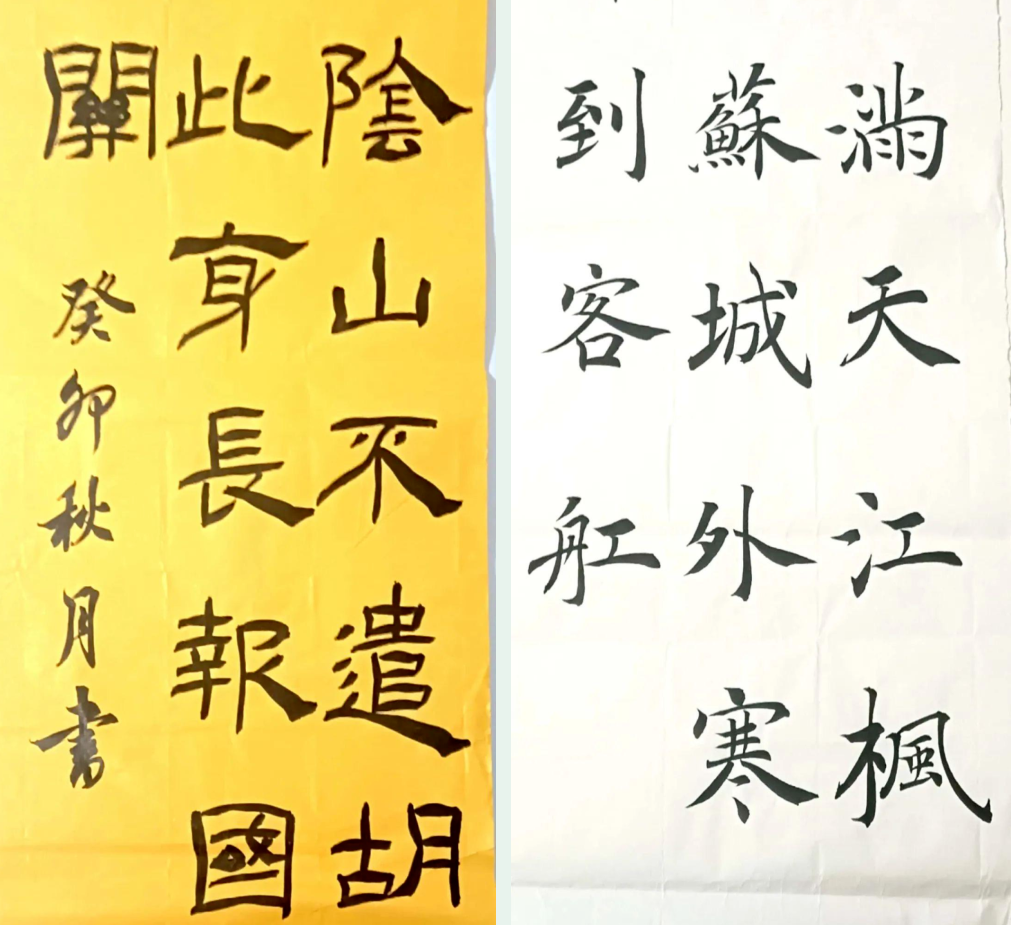 陰山不遣胡
此身長報國
關
癸卯秋月書
滿天江楓
蘇城外寒
到客舡